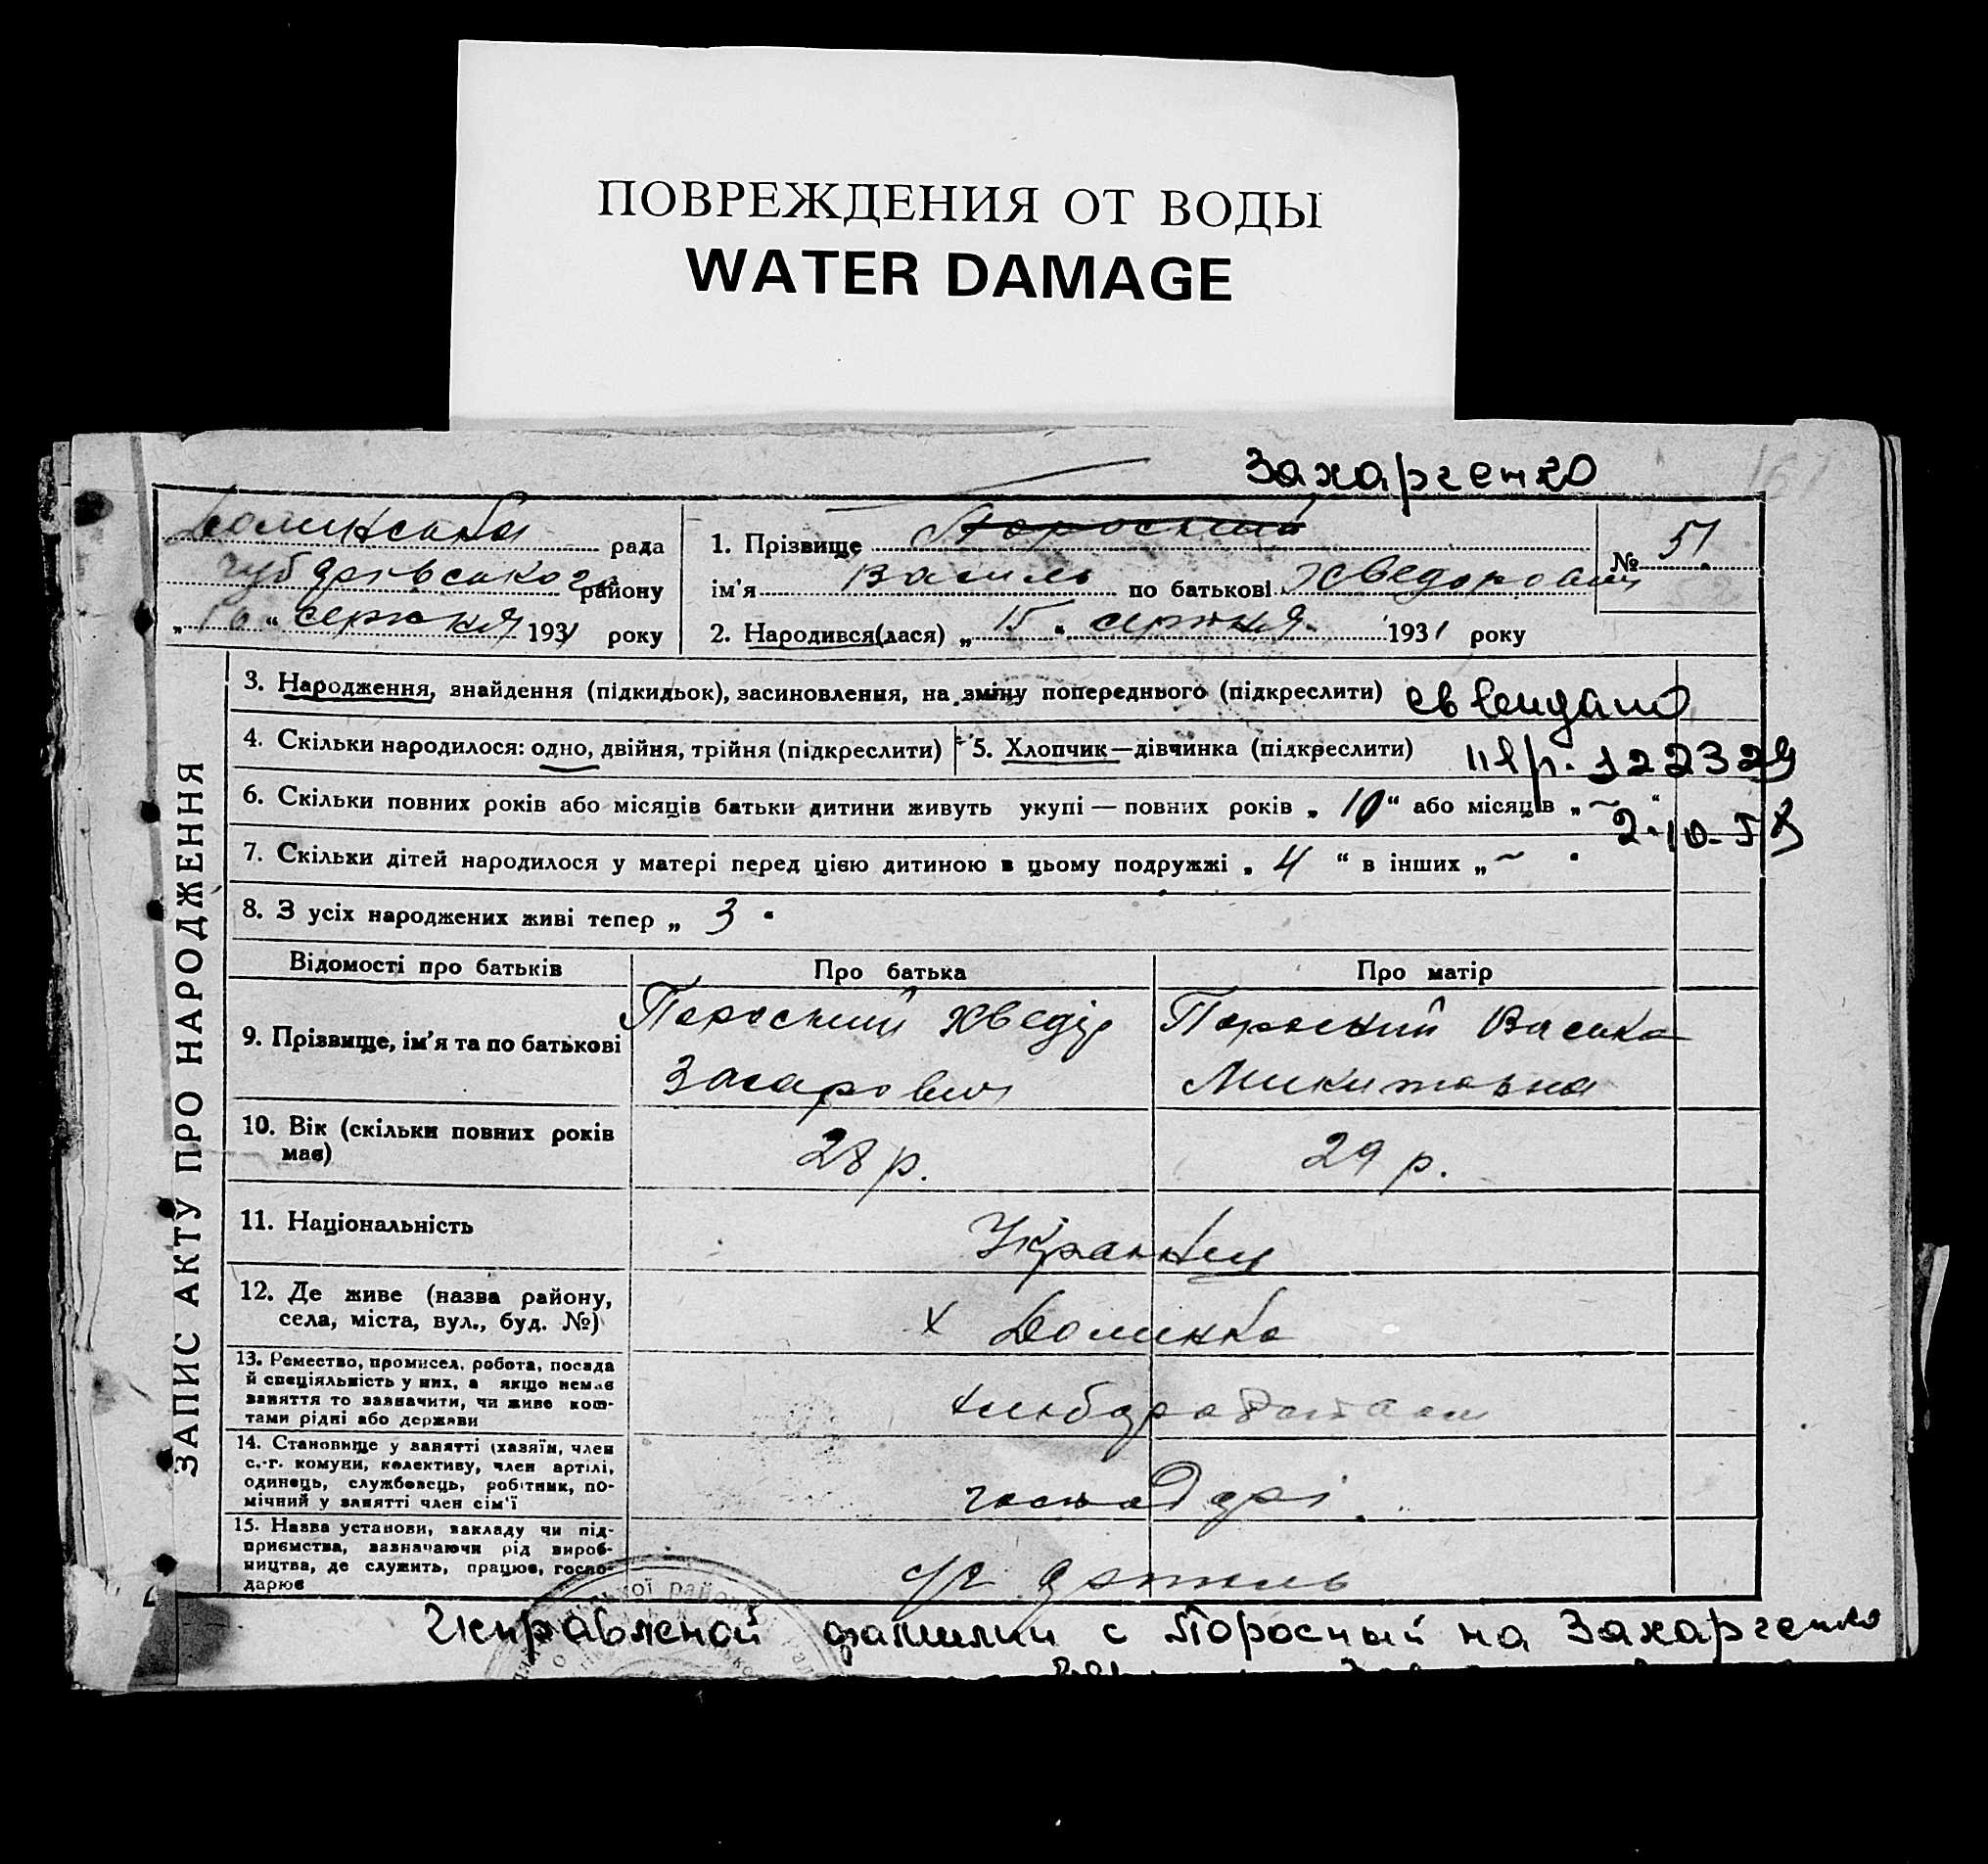 ПОВРЕЖДЕНИЯ ОТ ВОДЫ
WATER DAMAGE
Захарченко
161
Долинська рада
Чубарівського району
„ 16 “ серпня 1931 року
1. Прізвище Пороский
ім'я Василь по батькові Хведорович
2. Народився(лася) „ 15 “ серпня 1931 року
№ 51
ЗАПИС АКТУ ПРО НАРОДЖЕННЯ
3. Народження, знайдення (підкидьок), засиновлення, на зміну попереднього (підкреслити)
4. Скільки народилося: одно, двійня, трійня (підкреслити)
5. Хлопчик—дівчинка (підкреслити)
122329
6. Скільки повних років або місяців батьки дитини живуть укупі — повних років „ 10 “ або місяців „ ~ “
2-10-58
7. Скільки дітей народилося у матері перед цією дитиною в цьому подружжі „ 4 “ в інших „ ~
8. З усіх народжених живі тепер „ 3
Відомості про батьків
Про батька
Про матір
9. Прізвище, ім'я та по батькові
Пороский Хведір
Захарович
Пороский Васика
Микитовна
10. Вік (скільки повних років має)
28 р.
29 р.
11. Національність
Українці
12. Де живе (назва району,
села, міста, вул., буд. №)
х Долинка
13. Ремество, промисел, робота, посада
й спеціяльність у них, а якщо немає
заняття то зазначити, чи живе кош-
тами рідні або держави
хлібороби
14. Становище у занятті (хазяїн, член
с.-г. комуни, колективу, член артілі,
одинець, службовець, робітник, по-
мічний у занятті член сім'ї
господарі
15. Назва установи, закладу чи під-
приємства, зазначаючи рід вироб-
ництва, де служить, працює, госпо-
дарює
с/г артиль
фамилии с Поросный на Захарченко